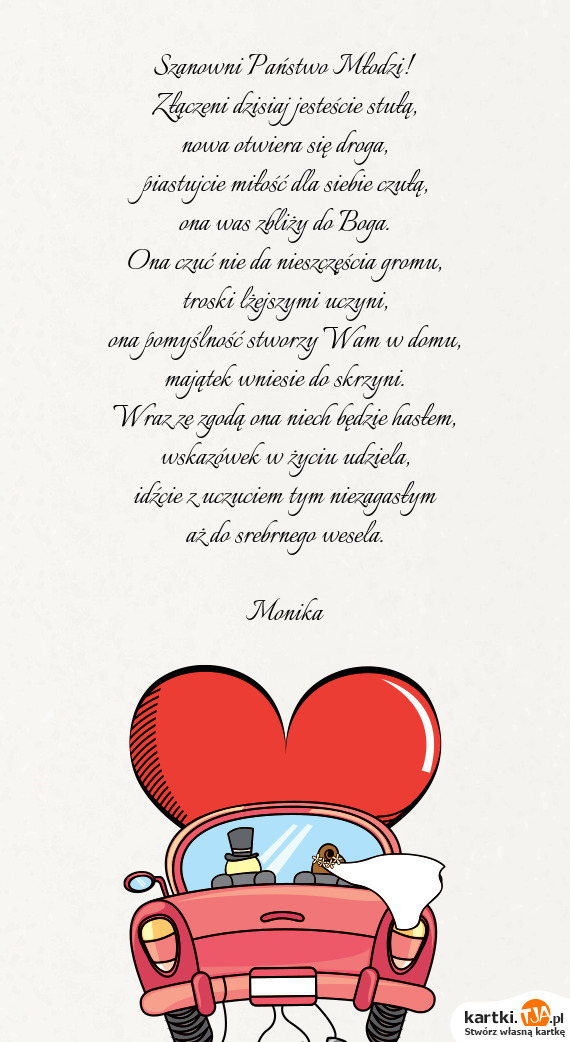 Szanowni Państwo Młodzi!
Złączeni dzisiaj jesteście stułą,
nowa otwiera się droga,
piastujcie miłość dla siebie czułą,
ona was zbliży do Boga.
Ona czuć nie da nieszczęścia gromu,
troski lżejszymi uczyni,
ona pomyślność stworzy Wam w domu,
majątek wniesie do skrzyni.
Wraz ze zgodą ona niech będzie hasłem,
wskazówek w życiu udziela,
idźcie z uczuciem tym niezagasłym
aż do srebrnego wesela.
Monika
kartki.TJA.pl
Stwórz własną kartkę